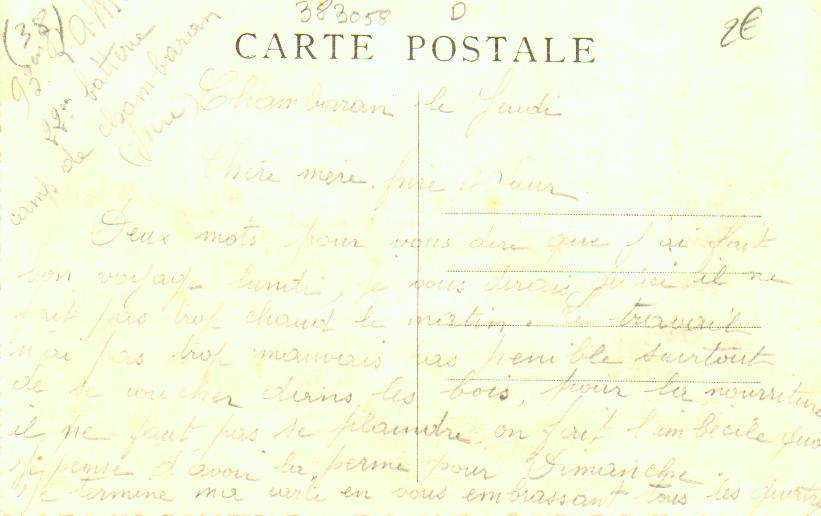 383058 D
2€
(38)
CARTE POSTALE
22em batterie
camp de chambaran
(Isère)
Chambaran le Jeudi
Chère mère, frère et Sœur
Deux mots pour vous dire que j'ai fait
bon voyage lundi, je vous dirais qu'ici il ne
fait pas trop chaud le matin. Le travail
n'ai pas trop mauvais pas penible surtout
de se coucher dans les bois, pour la nourriture
il ne faut pas se plaindre, on fait l'imbecile quoi
Je pense d'avoir la perme pour Dimanche
Je termine ma carte en vous embrassant tous les quatre